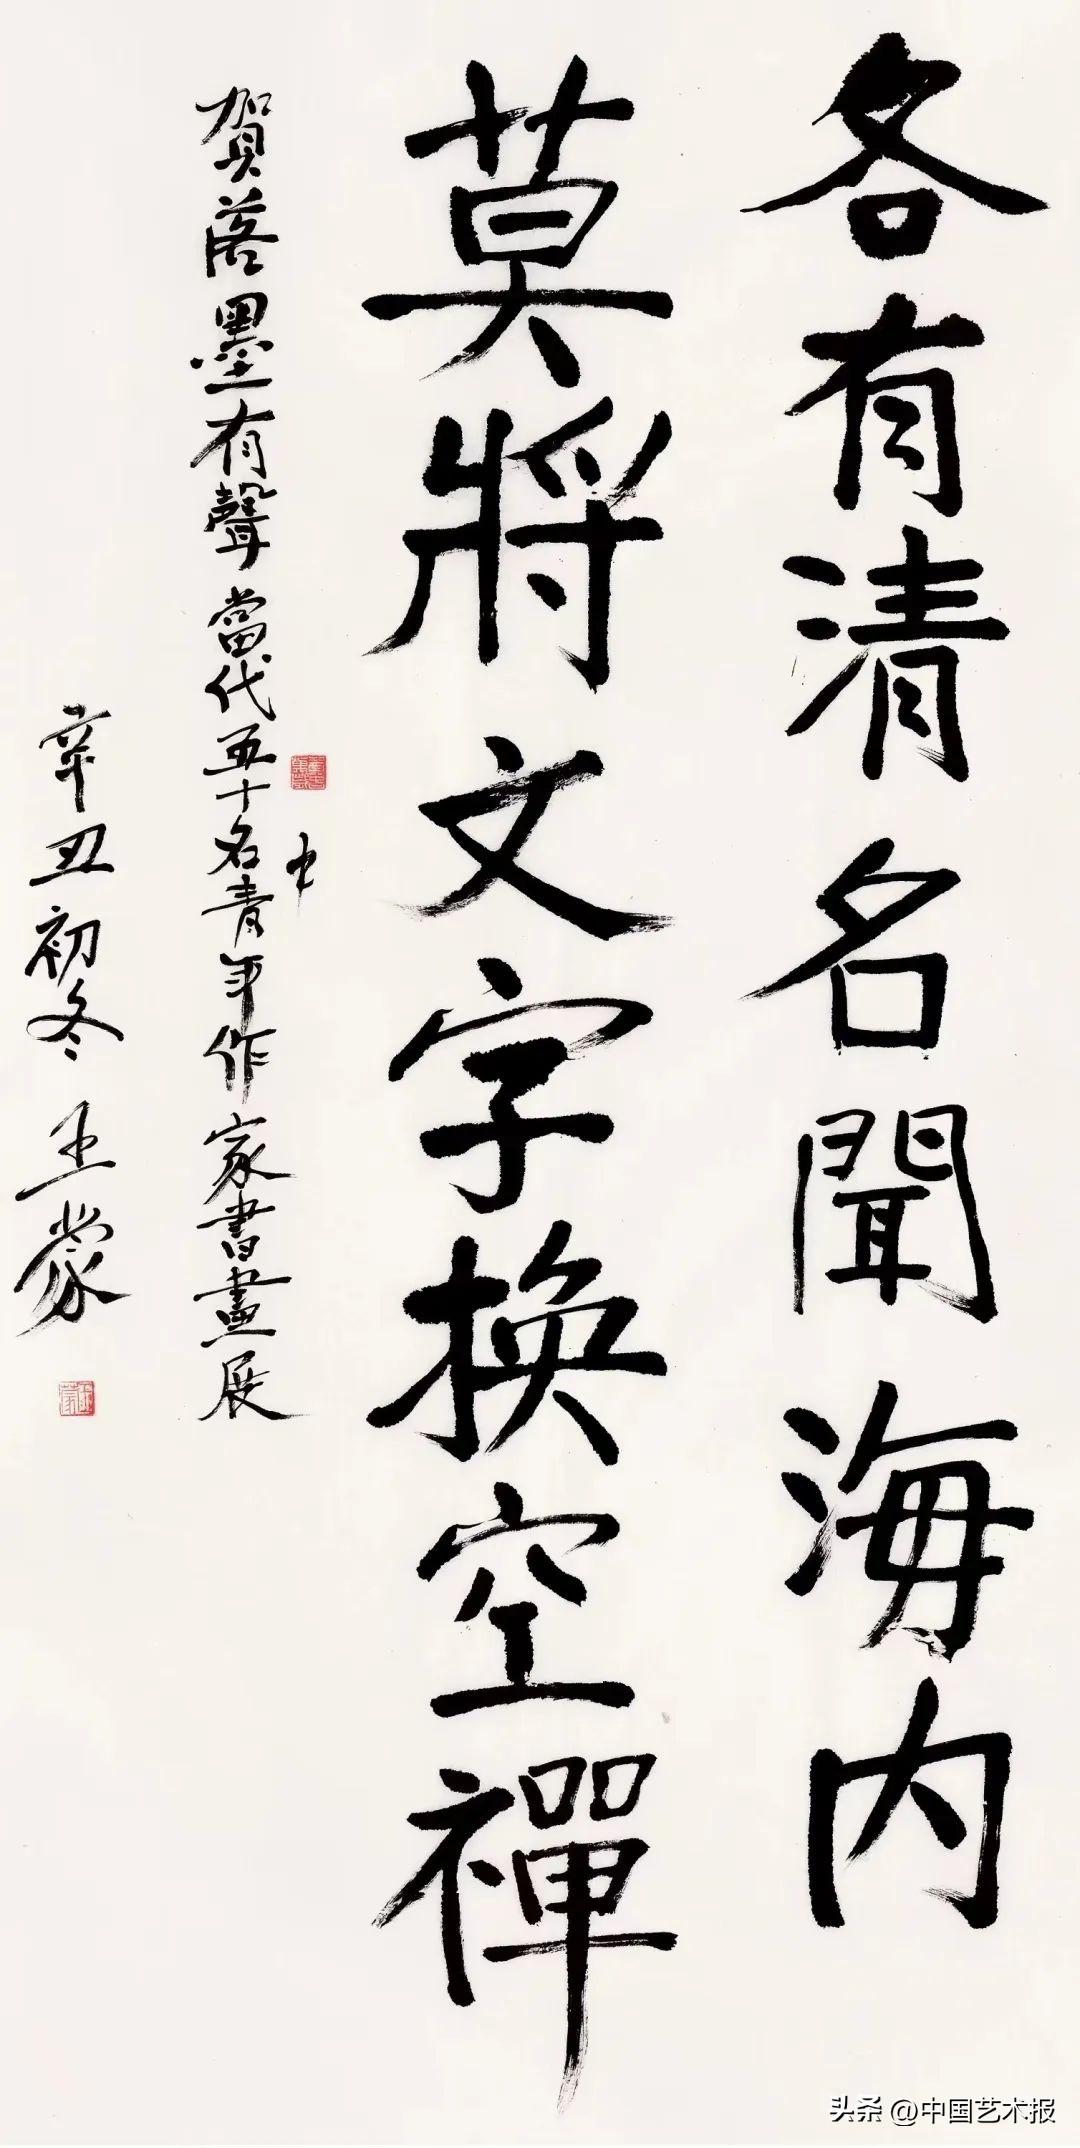 各有清名聞海内
莫將文字換空禪
賀落墨有聲當代五十名中青年作家書畫展
辛丑初冬 王蒙
王蒙
头条 @中国艺术报